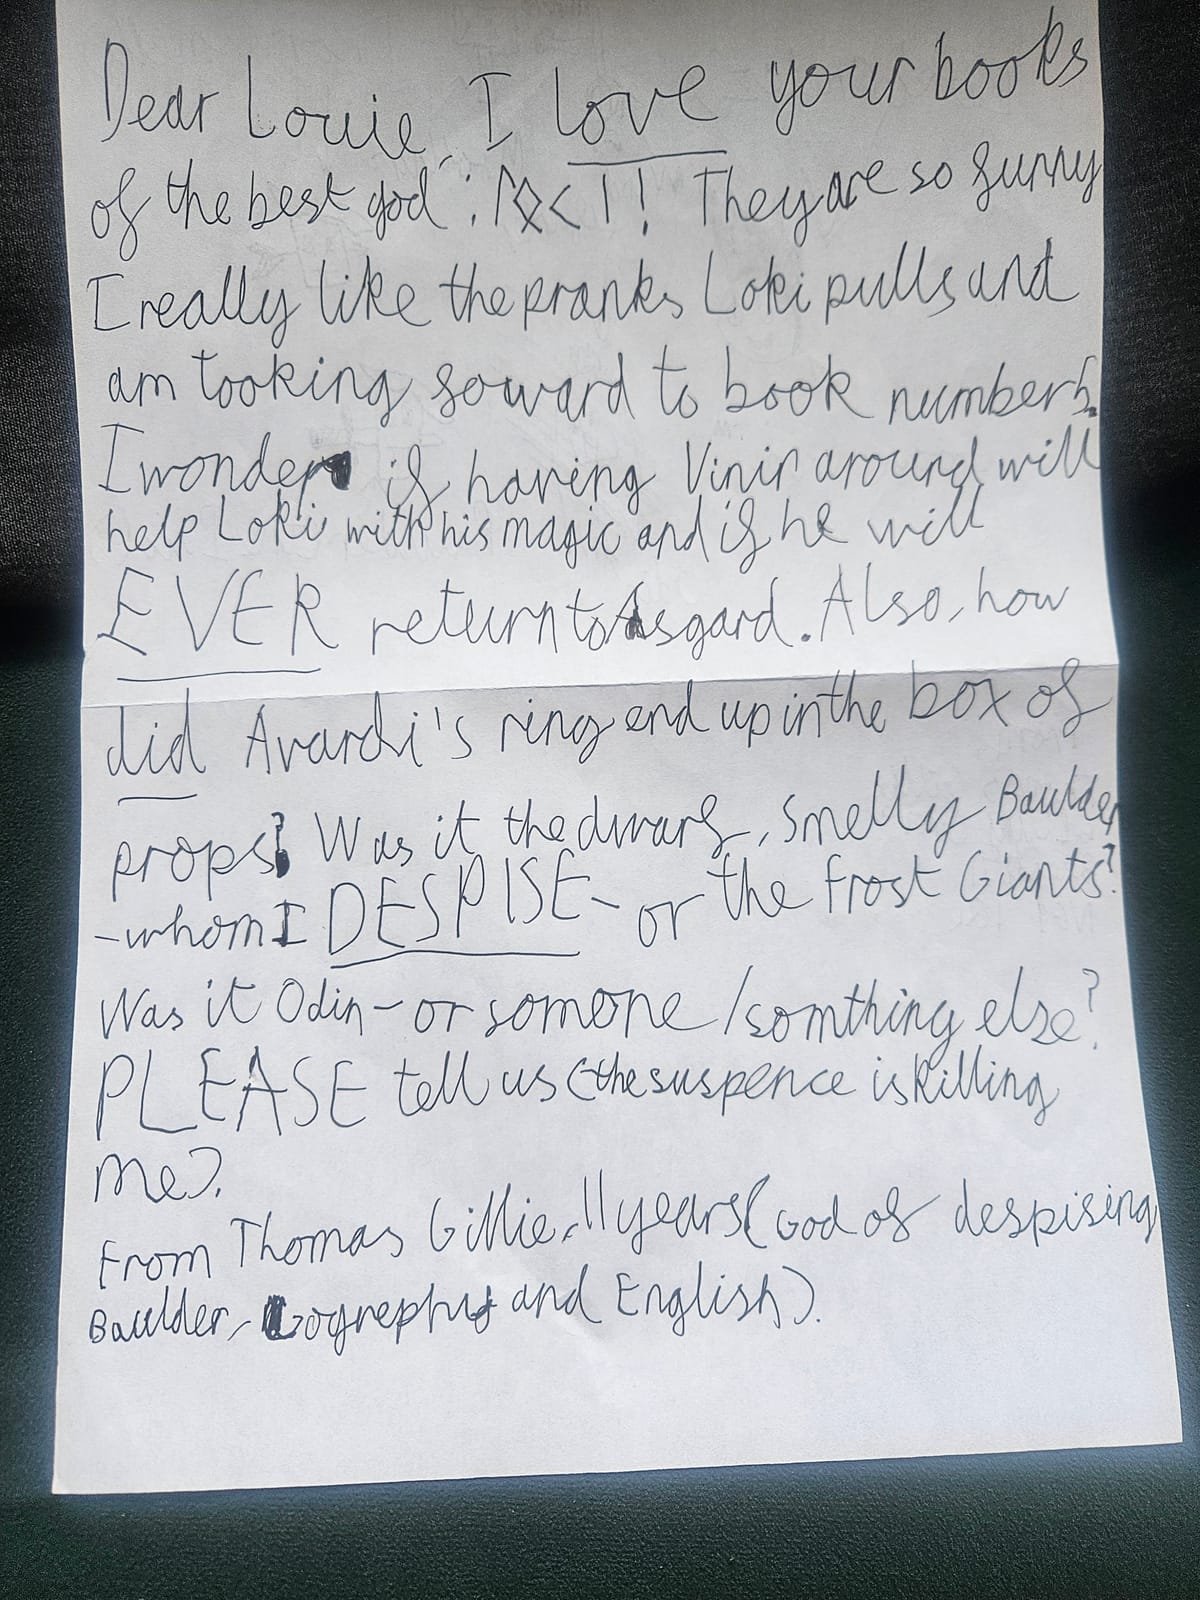 Dear Louie, I love your books
of the best god: ᛚᛟᚲᛁ! They are so funny
I really like the pranks Loki pulls and
am looking foward to book number 5.
I wonder if having Vinir around will
help Loki with his magic and if he will
EVER return to Asgard. Also, how
did Avardi's ring end up in the box of
props? Was it the dwarf, Smelly Baulder
-whom I DESPISE- or the Frost Giants?
Was it Odin - or somone/somthing else?
PLEASE tell us (the suspence is killing
me).
From Thomas Gillie, 11 years (God of despising
Baulder, and English).